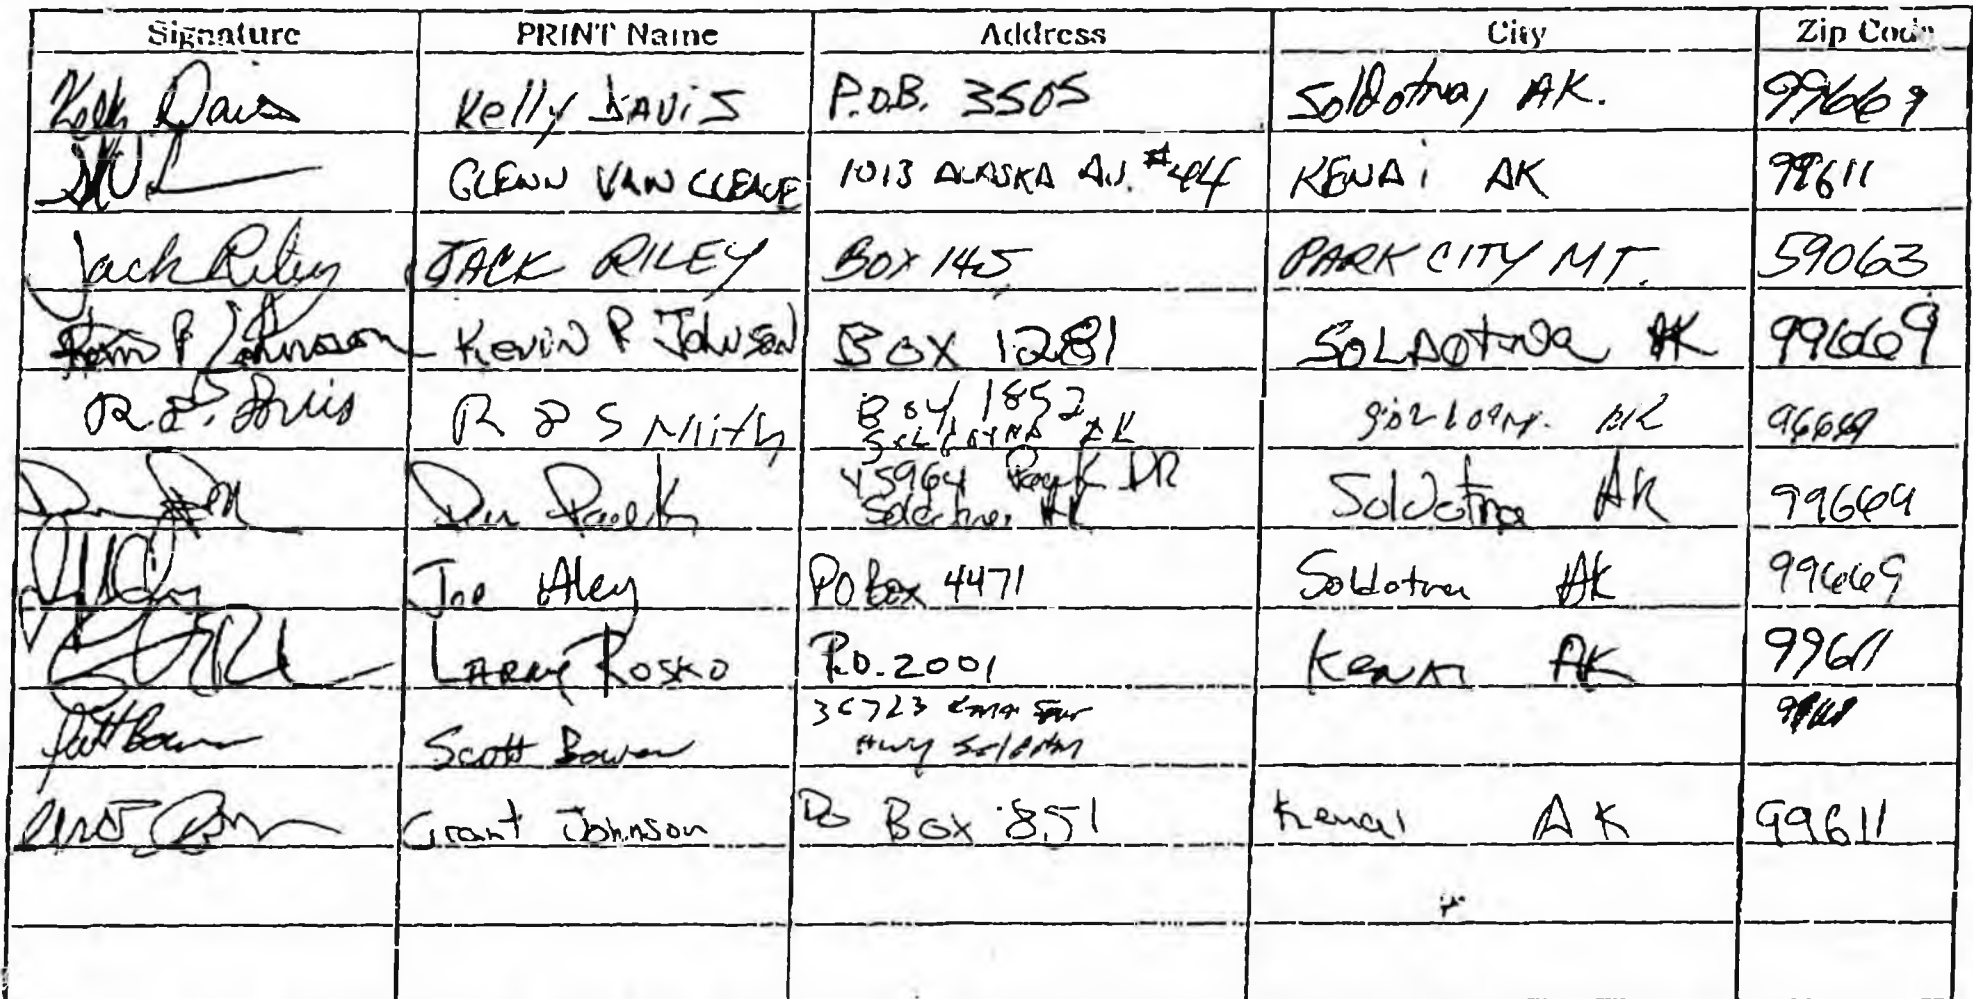 Signature PRINT Name Address City Zip Code
Kelly Davis Kelly DAVIS P.O.B. 3505 Soldotna, AK. 99669
GLENN VAN CLEAVE 1013 ALASKA AV. #44 KENAi AK 99611
Jack Riley JACK RILEY BOX 145 PARK CITY MT. 59063
Kevin P Johnson Kevin P Johnson BOX 1281 SOLDOTNA AK 99669
R S Smith Box 1852
AK
45964 DR Soldotna AK 99669
Soldotna AK
Joe Aley PO Box 4471 Soldotna AK 99669
LARRY ROSKO P.O. 2001 Kenai AK 99611
Scott Bowen Scott Bowen
Hwy
Grant Johnson PO Box 851 Kenai AK 99611